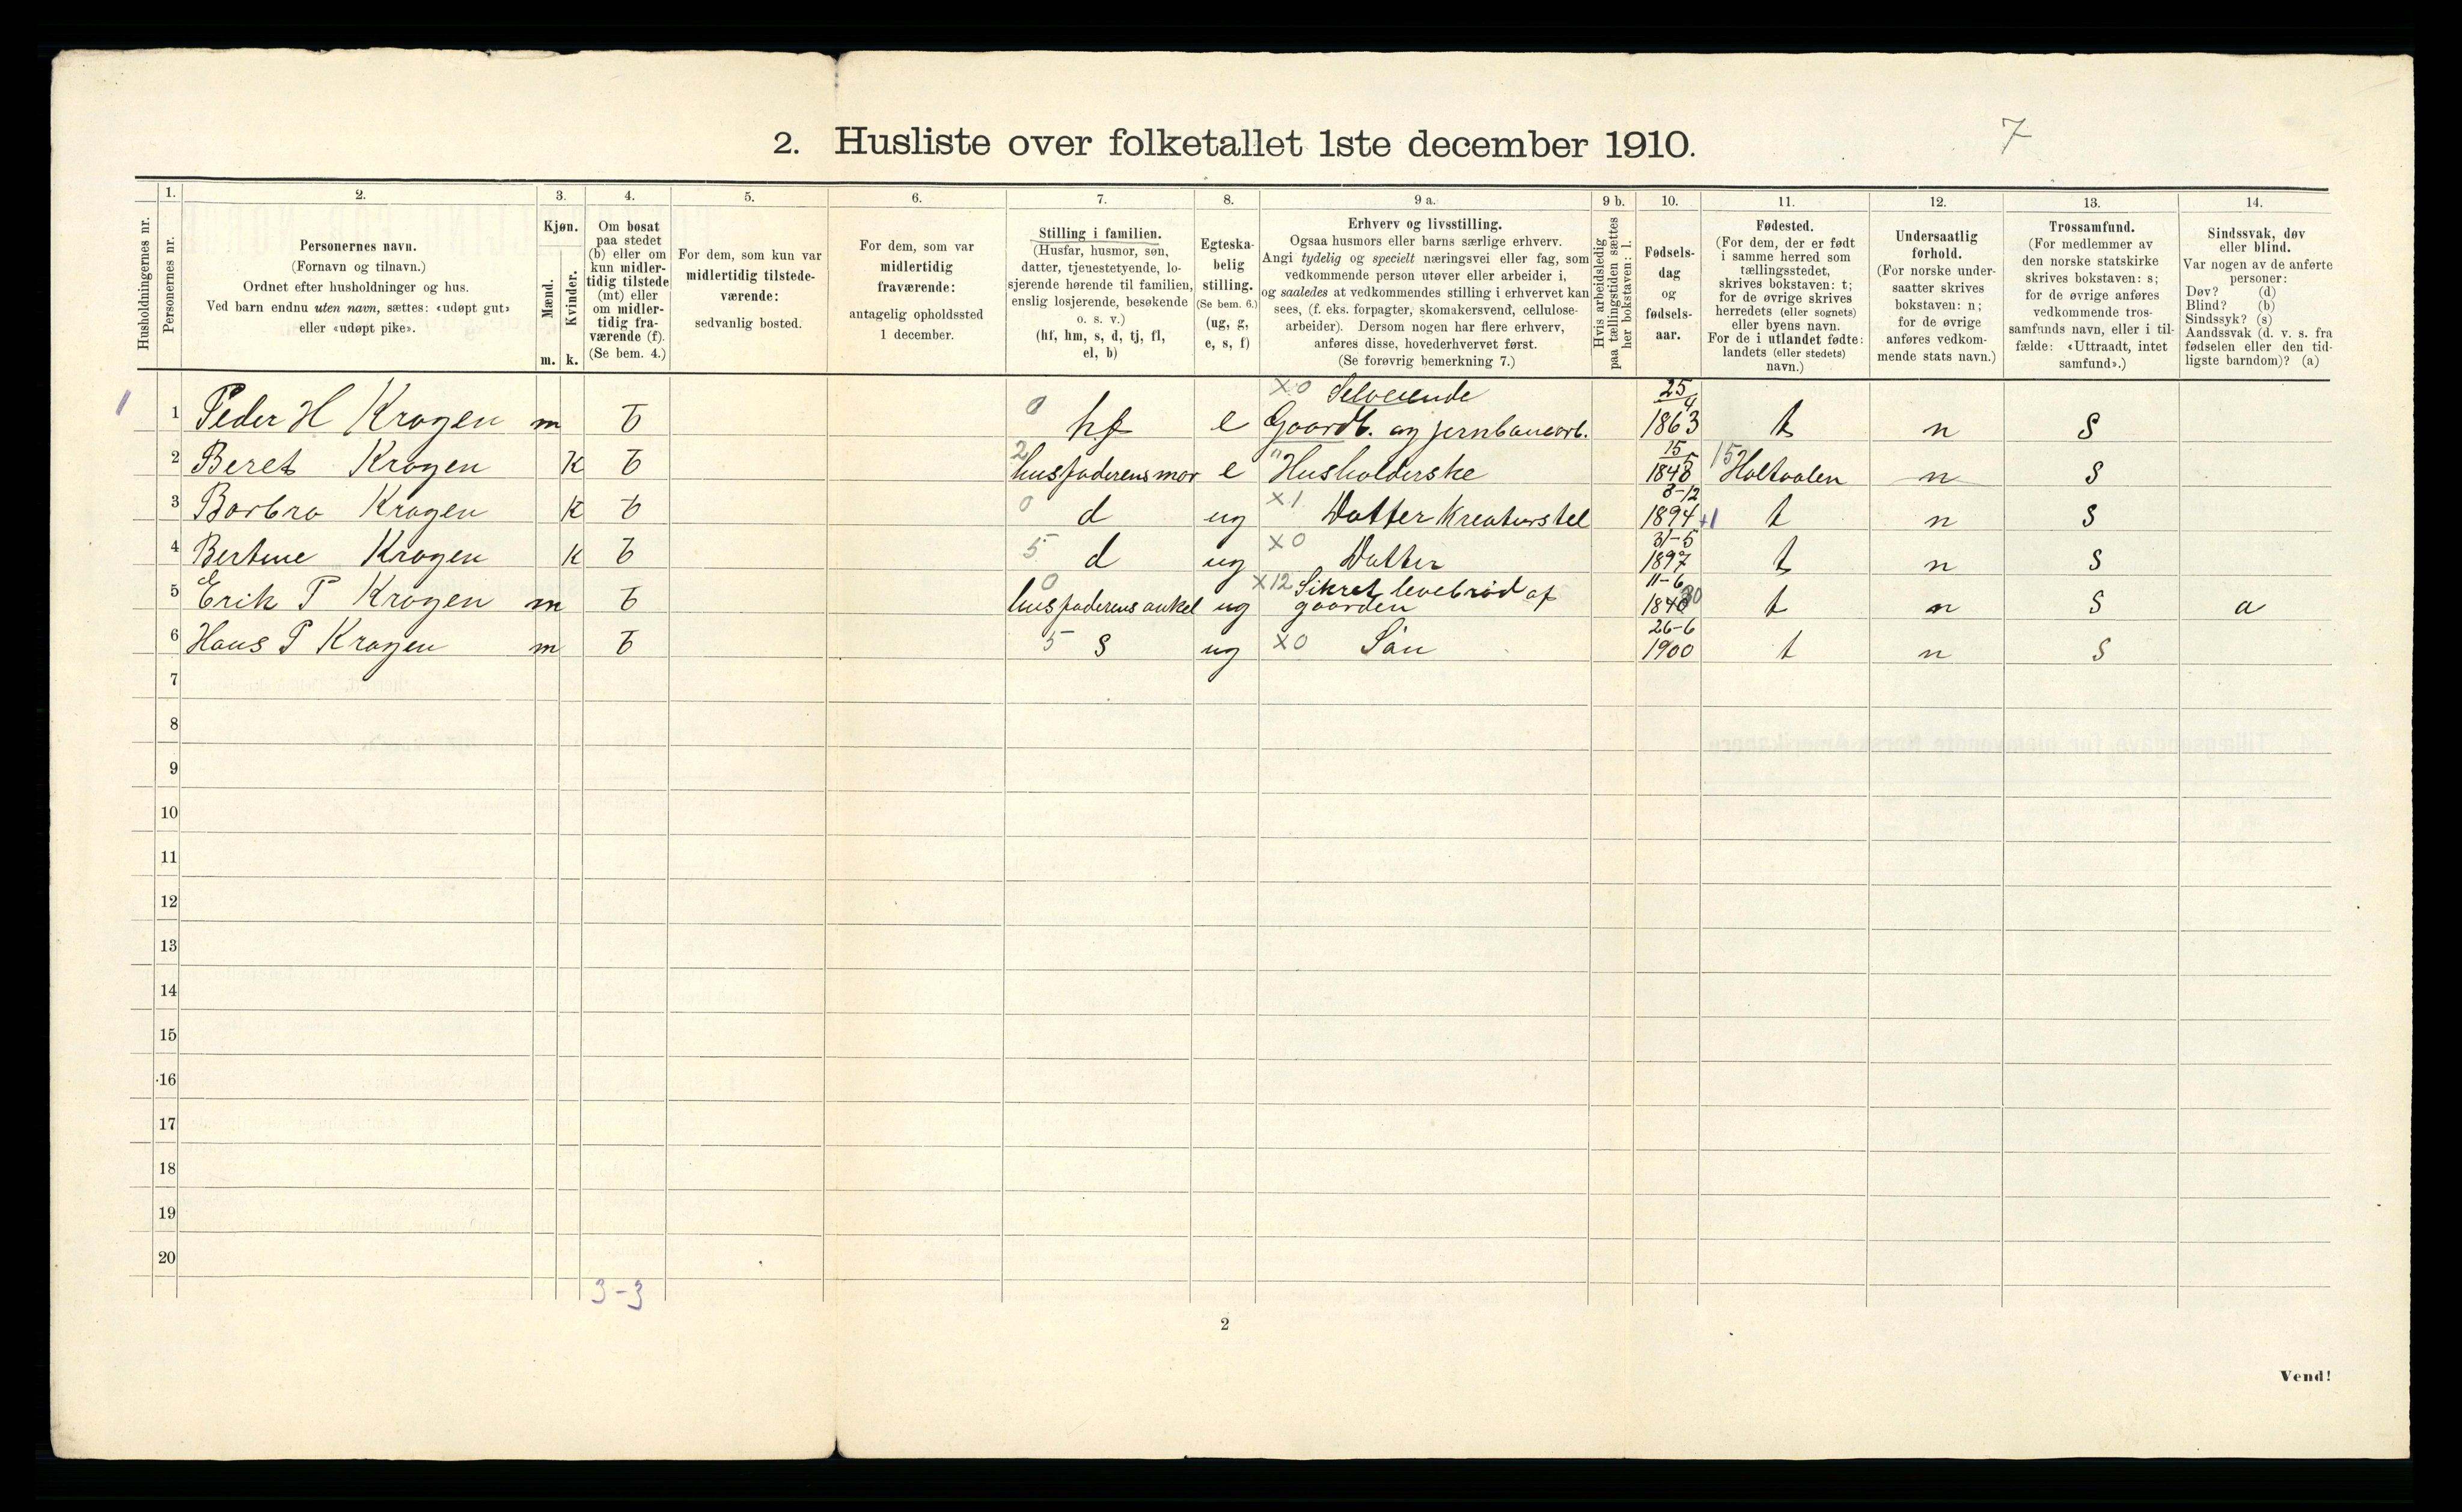 2. Husliste over folketallet 1ste december 1910.
7
Husholdningernes nr.
1.
Personernes nr.
2.
Personernes navn.
(Fornavn og tilnavn.)
Ordnet efter husholdninger og hus.
Ved barn endnu uten navn, sættes: «udøpt gut»
eller «udøpt pike».
3.
Kjøn.
Mænd.
Kvinder.
m. k.
4.
Om bosat
paa stedet
(b) eller om
kun midler-
tidig tilstede
(mt) eller
om midler-
tidig fra-
værende (f).
(Se bem. 4.)
5.
For dem, som kun var
midlertidig tilstede-
værende:
sedvanlig bosted.
6.
For dem, som var
midlertidig
fraværende:
antagelig opholdssted
1 december.
7.
Stilling i familien.
(Husfar, husmor, søn,
datter, tjenestetyende, lo-
sjerende hørende til familien,
enslig losjerende, besøkende
o. s. v.)
(hf, hm, s, d, tj, fl,
el, b)
8.
Egteska-
belig
stilling.
(Se bem. 6.)
(ug, g,
e, s, f)
9 a.
Erhverv og livsstilling.
Ogsaa husmors eller barns særlige erhverv.
Angi tydelig og specielt næringsvei eller fag, som
vedkommende person utøver eller arbeider i,
og saaledes at vedkommendes stilling i erhvervet kan
sees, (f. eks. forpagter, skomakersvend, cellulose-
arbeider). Dersom nogen har flere erhverv,
anføres disse, hovederhvervet først.
(Se forøvrig bemerkning 7.)
9 b.
Hvis arbeidsledig
paa tællingstiden sættes
her bokstaven: l.
10.
Fødsels-
dag
og
fødsels-
aar.
11.
Fødested.
(For dem, der er født
i samme herred som
tællingsstedet,
skrives bokstaven: t;
for de øvrige skrives
herredets (eller sognets)
eller byens navn.
For de i utlandet fødte:
landets (eller stedets)
navn.)
12.
Undersaatlig
forhold.
(For norske under-
saatter skrives
bokstaven: n;
for de øvrige
anføres vedkom-
mende stats navn.)
13.
Trossamfund.
(For medlemmer av
den norske statskirke
skrives bokstaven: s;
for de øvrige anføres
vedkommende tros-
samfunds navn, eller i til-
fælde: «Uttraadt, intet
samfund».)
14.
Sindssvak, døv
eller blind.
Var nogen av de anførte
personer:
Døv? (d)
Blind? (b)
Sindssyk? (s)
Aandssvak (d. v. s. fra
fødselen eller den tid-
ligste barndom)? (a)
x0 Selveiende 25/4
1 1 Peder H Krogen m b 0 hf e Gaardb. og jernbanearb. 1863 t n s
15/5
2 Beret Krogen k b 2 husfaderens mor e " Husholderske 1848 15 Holtaalen n s
8-12
3 Barbro Krogen k b 0 d ug x1 Datter Kreaturstel 1894 +1 t n s
31-5
4 Bertine Krogen k b 5 d ug x0 Datter 1897 t n s
0 x12 Sikret levebrød af 11-6
5 Erik P Krogen m b husfaderens onkel ug gaarden 1840 30 t n s a
26-6
6 Hans P Krogen m b 5 s ug x0 Sön 1900 t n s
7
8
9
10
11
12
13
14
15
16
17
18
19
20
3-3
2
Vend!